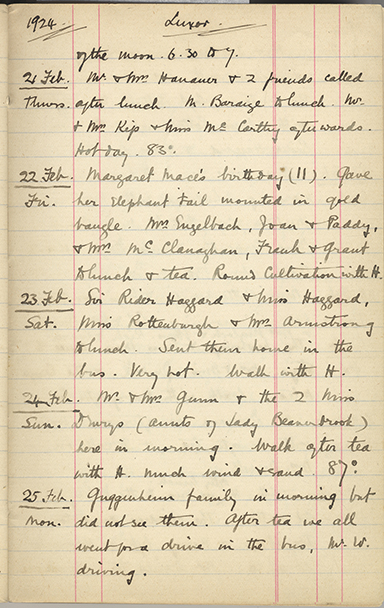 1924. Luxor.
of the moon. 6.30 to 7.
21 Feb. Mr. & Mrs Hanauer & 2 friends called
Thurs. after lunch. M. Baraize to lunch. Mr.
& Mrs Kip & Miss Mc Carthy afterwards.
Hot day. 83°.
22 Feb. Margaret Mace's birthday (11). Gave
Fri. her Elephant tail mounted in gold
bangle. Mrs Engelbach, Joan & Paddy,
& Mrs Mc Clanaghan, Frank & Grant
to lunch & tea. Round Cultivation with H.
23 Feb. Sir Rider Haggard & Miss Haggard,
Sat. Miss Rottenburgh & Mrs Armstrong
to lunch. Sent them home in the
bus. Very hot. Walk with H.
24 Feb. Mr. & Mrs Gunn & the 2 Miss
Sun. Drurys (aunts of Lady Beaverbrook)
here in morning. Walk after tea
with H. Much wind & sand. 87°
25 Feb. Guggenheim family in morning but
Mon. did not see them. After tea we all
went for a drive in the bus, Mr. W.
driving.